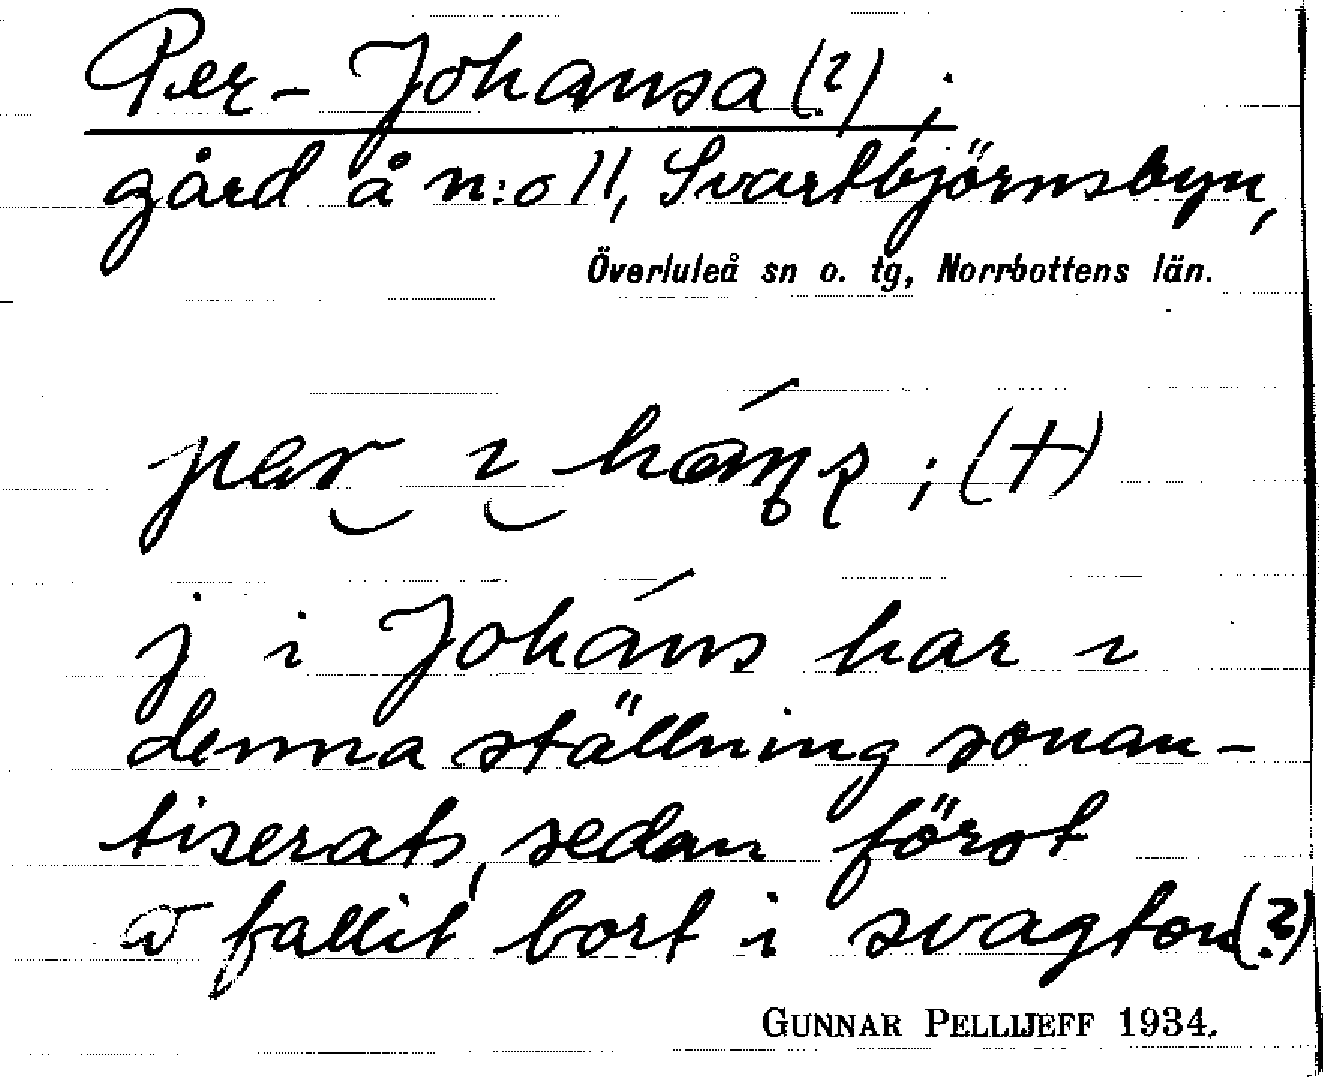 Per-Johansa(?);
gård å n:o 11, Svartbjörnsbyn,
Överluleå sn o. tg, Norrbottens län.
per ı ; (+)
j i Joháns har ı
denna ställning sonan-
tiserats, sedan först
fallit bort i svagton(?)
GUNNAR PELLIJEFF 1934.